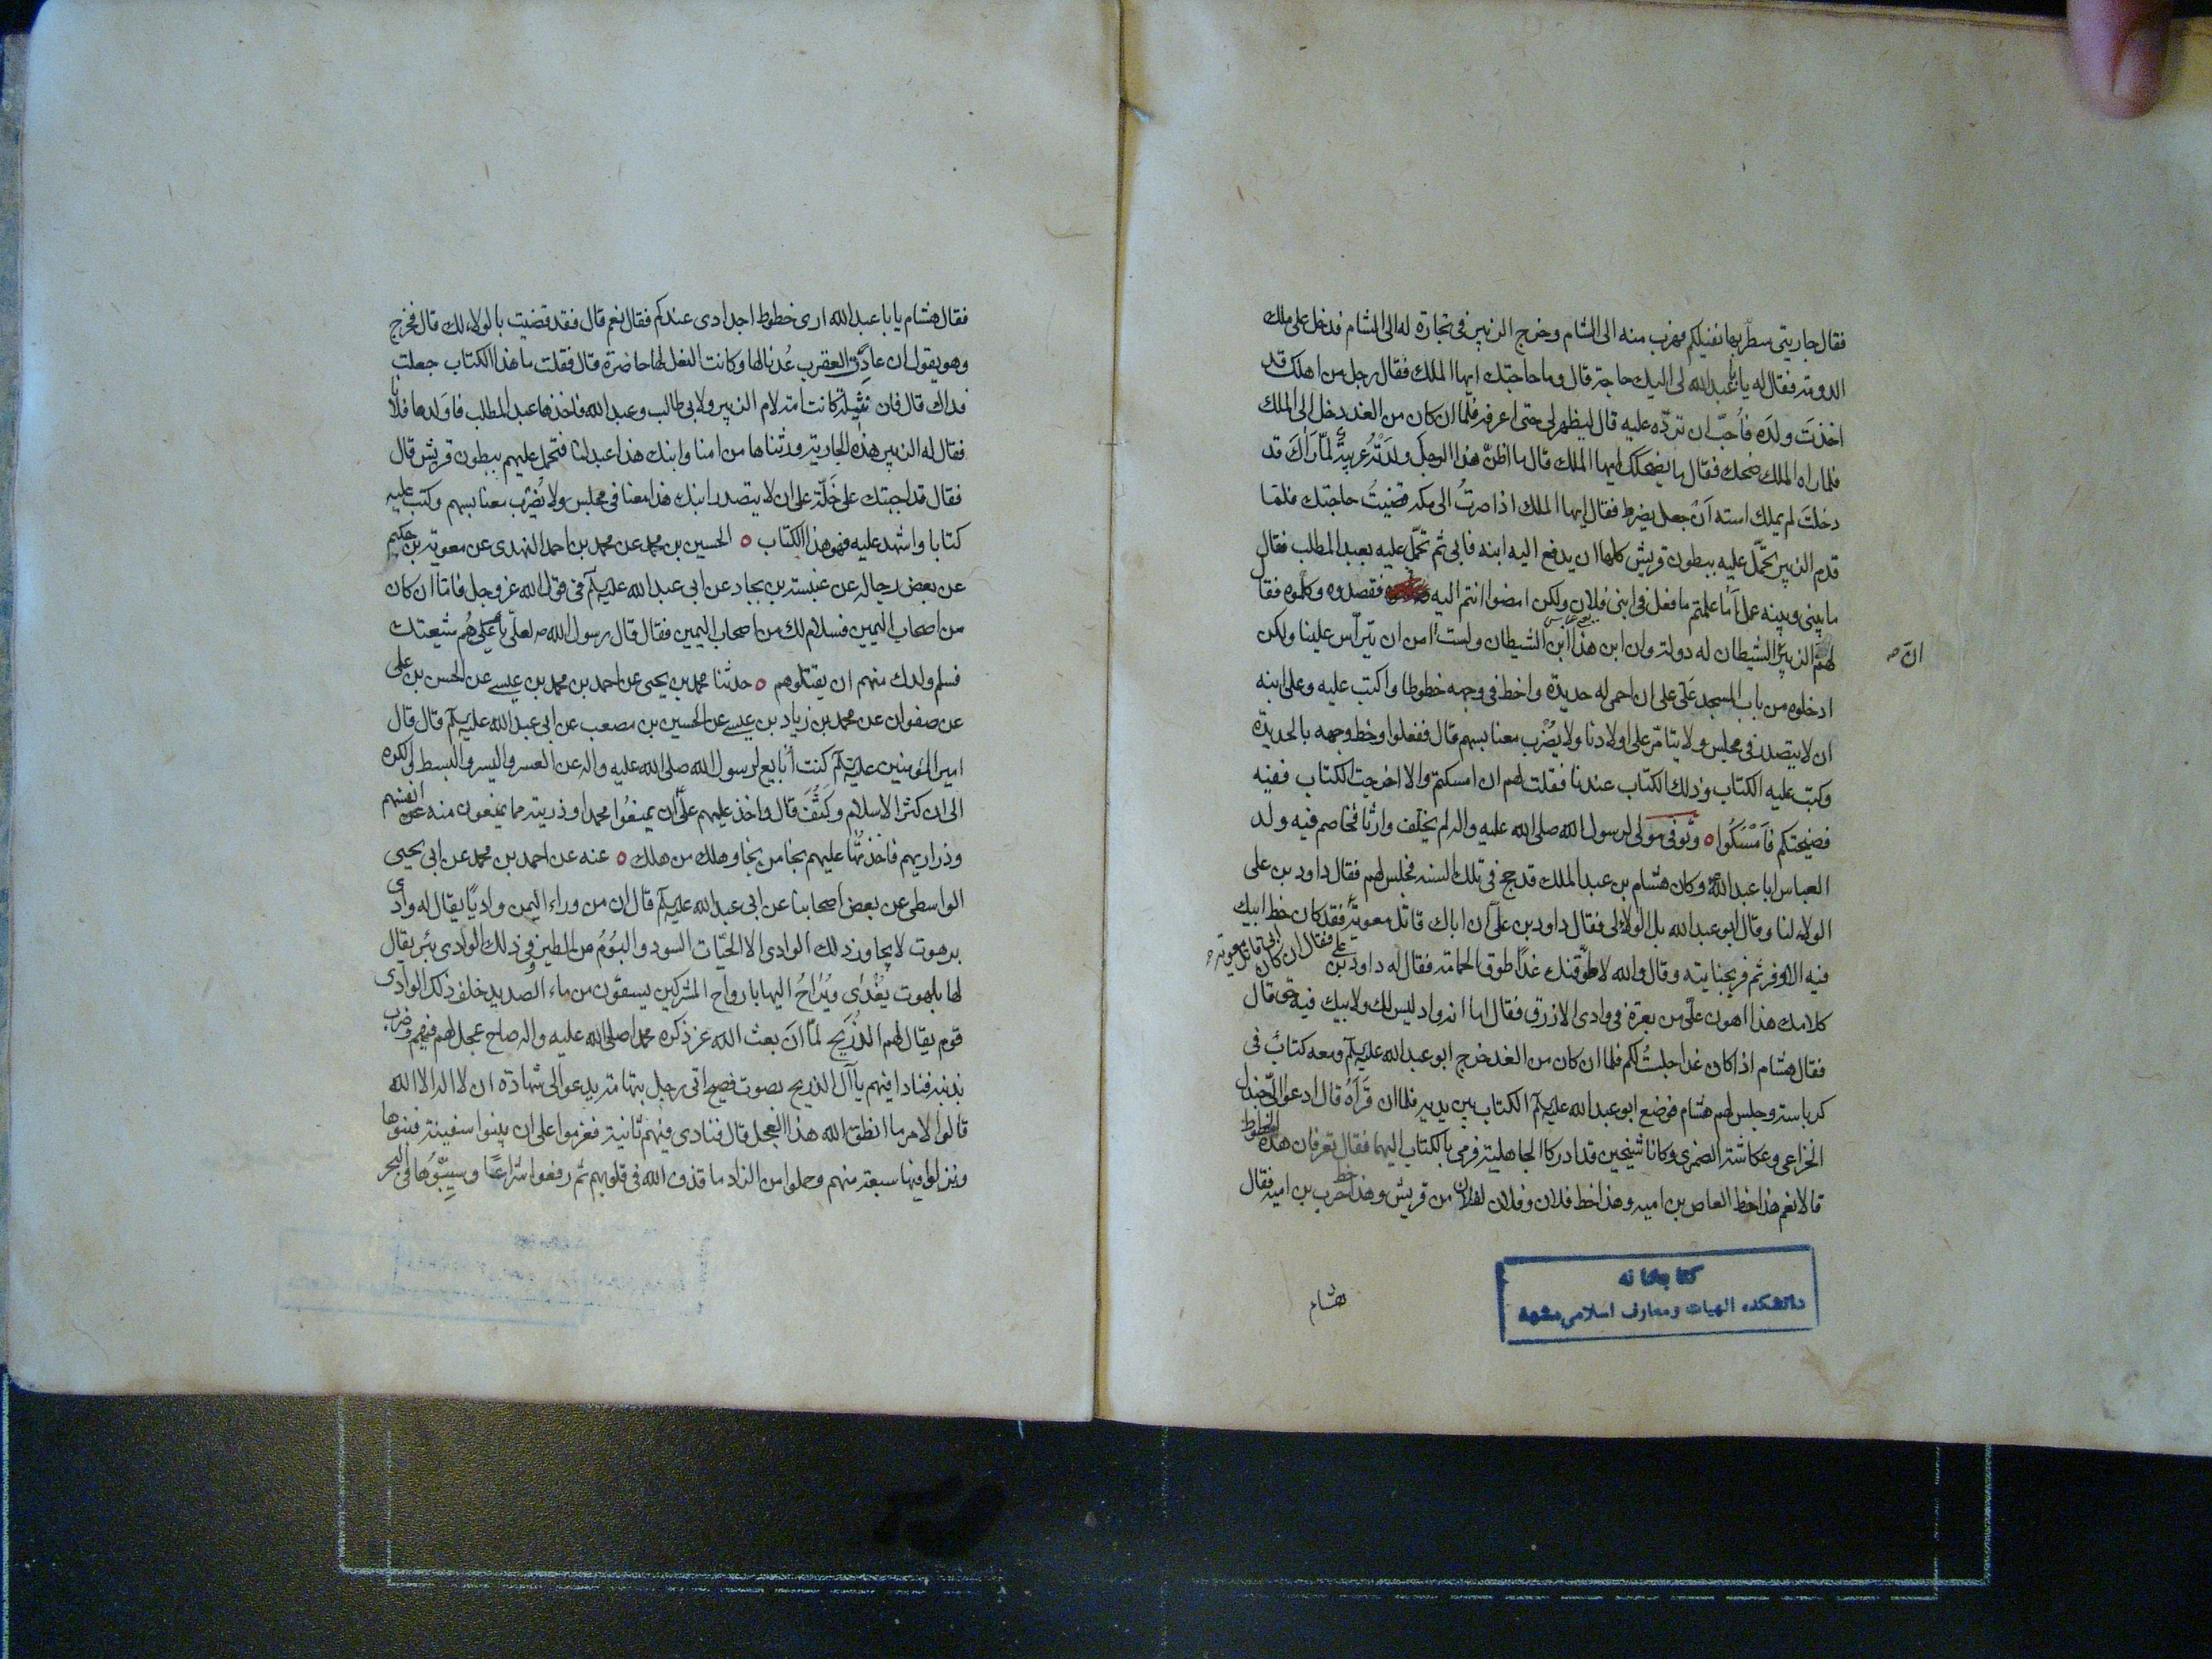 فقال جاريتى سطر بها نفيلكم فهرب منه الى الشام وخرج الزبير فى تجارة له الى الشام فدخل على ملك
الدومة فقال له يا با عبد الله لى اليك حاجة قال وما حاجتك ايها الملك فقال رجل من اهلك قد
اخذت ولده فأحب ان تردّه عليه قال ليظهر لى حتى اعرفه فلما ان كان من الغد دخل الى الملك
فلما راه الملك ضحك فقال ما يضحكك ايها الملك قال ما اظن هذا الرجل ولدته عربية لمّا رآك قد
دخلت لم يملك استه ان جعل يضرط فقال ايها الملك اذا صرت الى مكه قضيت حاجتك فلما
قدم الزبير تحمّل عليه ببطون قريش كلها ان يدفع اليه ابنه فابى ثم تحمّل عليه بعبد المطلب فقال
ما بينى وبينه عمل أما علمتم ما فعل فى ابنى فلان ولكن امضوا انتم اليه فقصدوه وكلموه فقا
لهم الزبير الشيطان له دولة وان ابن هذا ابن الشيطان ولست أمن ان يترأس علينا ولكن
انّ صـ
ادخلوه من باب المسجد عَلَىّ على ان احمى له حديدة واخط فى وجهه خطوطا واكتب عليه وعلى ابنه
ان لا يتصدر فى مجلس ولا يتامّر على اولادنا ولا يضرب معنا بسهم قال ففعلوا وخط وجهه بالحديدة
وكتب عليه الكتاب وذلك الكتاب عندنا فقلت لهم ان امسكتم والا اخرجت الكتاب ففيه
فضيحتكم فَاَمْسَكُوا ه وتوفى مولى لرسول الله صلى الله عليه واله لم يخلّف وارثا فخاصم فيه ولد
العباس ابا عبد الله وكان هشام بن عبد الملك قد حج فى تلك السنه فجلس لهم فقال داود بن على
الولاء لنا وقال ابو عبد الله بل الولاء لى فقال داود بن على ان اباك قاتل معوية فقد كان خط ابيك
على فقال ان كان ابى قاتل معوية صـ
فيه الاوفر ثم فر بجنايته وقال والله لاطوّقنك غدا طوق الحمامة فقال له داود بن
كلامك هذا اهون علىّ من بعرة فى وادى الازرق فقال اما انه واد ليس لك ولا لابيك فيه حق قال
فقال هشام اذا كان غدا جلست لكم فلما ان كان من الغد خرج ابو عبد الله عليه السلام ومعه كتاب فى
كرباسة وجلس لهم هشام فوضع ابو عبد الله عليه السلام الكتاب بين يديه فلما ان قَرَأَهُ قال ادعوا لى جندل
الخزاعى وعكاشة الضمرى وكانا شيخين قد ادركا الجاهلية فرمى بالكتاب اليهما فقال تعرفان هذه الخطوط
قالا نعم هذا خط العاص بن اميه وهذا خط فلان وفلان لفلان من قريش وهذا خط حرب بن اميه فقال
هشام
كتابخانه
دانشكده الهيات ومعارف اسلامى مشهد
فقال هشام يا با عبد الله ارى خطوط اجدادى عندكم فقال نعم قال فقد قضيت بالولاء لك قال فخرج
وهو يقول ان عادت العقرب عُدنا لها وكانت النعل لها حاضرة قال فقلت ما هذا الكتاب جعلت
فداك قال فان نثيلة كانت امة لام الزبير ولابى طالب وعبد الله فاخذها عبد المطلب فاولدها فلانا
فقال له الزبير هذه الجارية ورثناها من امنا وابنك هذا عبد لنا فتحمل عليهم ببطون قريش قال
فقال قد اجبتك على خَلّة على ان لا يتصدر ابنك هذا معنا فى مجلس ولا يُضْرَب معنا بسهم وكتب عليه
كتابا واشهد عليه فهو هذا الكتاب ه الحسين بن محمد عن محمد بن احمد النهدى عن معوية بن حكيم
عن بعض رجاله عن عنبسة بن بجاد عن ابى عبد الله عليه السلام فى قول الله عز وجل فاما ان كان
من اصحاب اليمين فسلام لك من اصحاب اليمين فقال قال رسول الله صـ لعلى يا على هُم شيعتك
فسلم ولدك منهم ان يقتلوهم ه حدثنا محمد بن يحيى عن احمد بن محمد بن عيسى عن الحسن بن على
عن صفوان عن محمد بن زياد بن عيسى عن الحسين بن مصعب عن ابى عبد الله عليه السلام قال قال
امير المؤمنين عليه السلام كنت أبايع لرسول الله صلى الله عليه واله عن العسر واليسر والبسط والكره
الى ان كثر الاسلام وكَثُفَ قال واخذ عليهم علىّ ان يمنعُوا محمدا وذريته مما يمنعون منه انفسهم
وذراريهم فاخذتها عليهم نجا من نجا وهلك من هلك ه عنه عن احمد بن محمد عن ابى يحيى
الواسطى عن بعض اصحابنا عن ابى عبد الله عليه السلام قال ان من وراء اليمن واديًا يقال له وادى
برهوت لا يجاوز ذلك الوادى الا الحيّات السود والبُوُمُ من الطير فى ذلك الوادى بئر يقال
لها بلهوت يُغْدٰى ويُرَاحُ اليها بارواح المشركين يسقون من ماء الصديد خلف ذلك الوادى
قوم يقال لهم الذُرَيح لمّا انَ بعث الله عز ذكره محمدا صلى الله عليه واله صاح عجل لهم فيهم وضرب
بذنبه فنادا فيهم يا آل الذريح بصوت فصيح اتى رجل بتهامة يدعوا الى شهادة ان لا اله الا الله
قالوا لامر ما انطق الله هذا العجل قال فنادى فيهم ثانية فعزموا على ان يبنوا سفينة فبنوها
ونزلوا فيها سبعة منهم وحملوا من الزاد ما قذف الله فى قلوبهم ثم رفعوا شراعًا وسيّبُوهَا فى البحر